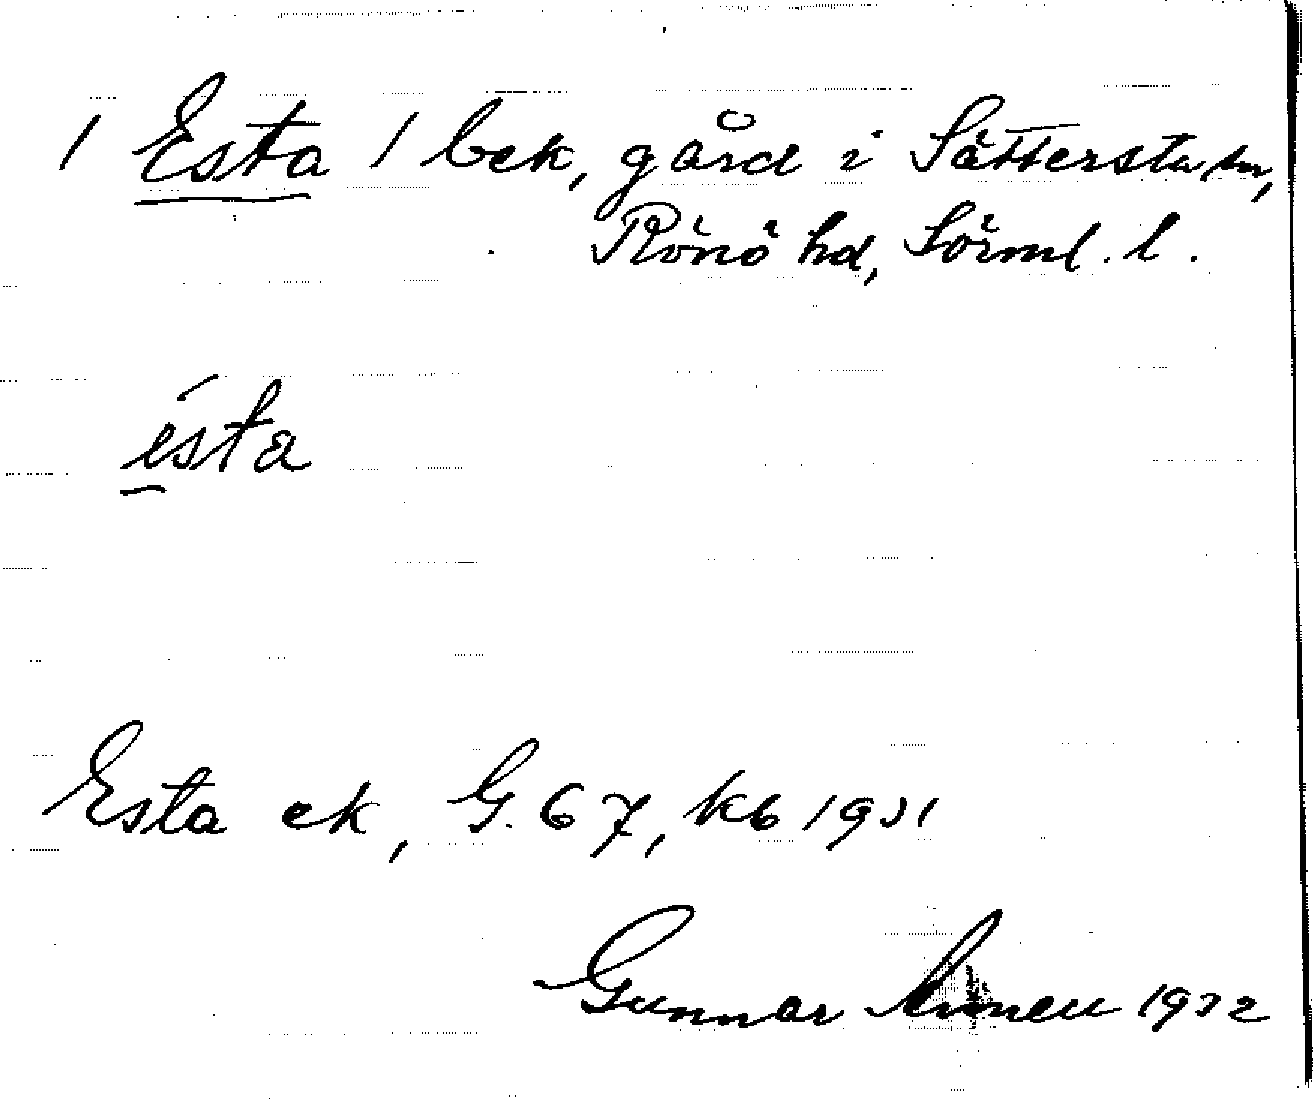 / Esta / bek, gård i Sättersta sn,
Rönö hd, Sörml. l.
ésta
Esta ek, G. 67, kb 1931
Gunnar 1932